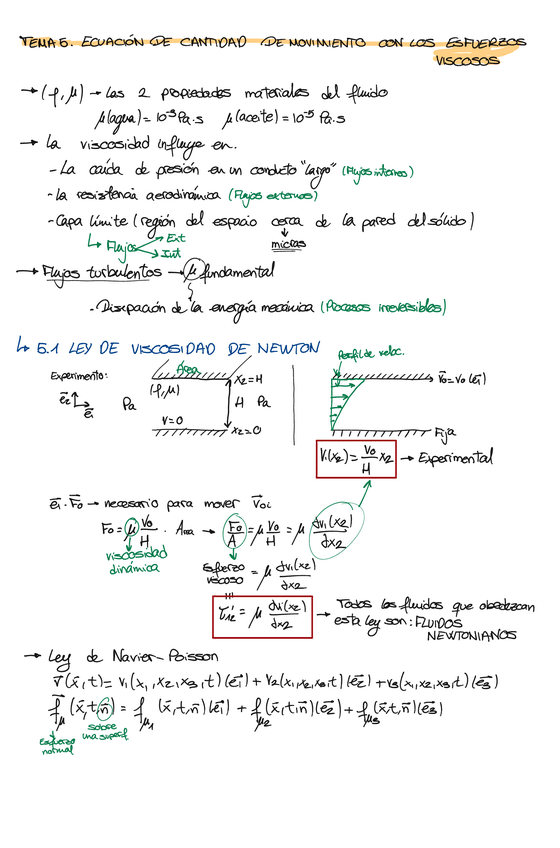 TEMA 5. ECUACIÓN DE CANTIDAD DE MOVIMIENTO CON LOS ESFUERZOS
VISCOSOS
→ (ρ, μ) → Las 2 propiedades materiales del fluido
μ(agua) = 10⁻³ Pa·s   μ(aceite) = 10⁻⁵ Pa·s
→ La viscosidad influye en:
- La caída de presión en un conducto "largo" (Flujos internos)
- La resistencia aerodinámica (Flujos externos)
- Capa límite (región del espacio cerca de la pared del sólido)
↳ Flujos Ext Int
micras
→ Flujos turbulentos → μ fundamental
- Disipación de la energía mecánica (Procesos irreversibles)
↳ 5.1 LEY DE VISCOSIDAD DE NEWTON
Experimento:
e₂ e₁
Pa
Área
(ρ, μ)
V=0
x₂=H
H Pa
x₂=0
Perfil de veloc.
v̄₀=v₀(ē₁)
Fija
V₁(x₂) = V₀/H x₂ → Experimental
ē₁·F̄₀ → necesario para mover v̄₀
F₀ = μ V₀/H · Área → F₀/A = μ V₀/H = μ dv₁(x₂)/dx₂
viscosidad
dinámica
Esfuerzo
viscoso = μ dv₁(x₂)/dx₂
τ'₁₂ = μ dv₁(x₂)/dx₂ → Todos los fluidos que obedezcan
esta ley son: FLUIDOS
NEWTONIANOS
→ Ley de Navier-Poisson
v̄(x̄,t) = V₁(x₁,x₂,x₃,t)(ē₁) + V₂(x₁,x₂,x₃,t)(ē₂) + V₃(x₁,x₂,x₃,t)(ē₃)
f̄μ(x̄,t,n̄) = fμ₁(x̄,t,n̄)(ē₁) + fμ₂(x̄,t,n̄)(ē₂) + fμ₃(x̄,t,n̄)(ē₃)
Esfuerzo
normal
sobre
una superf.